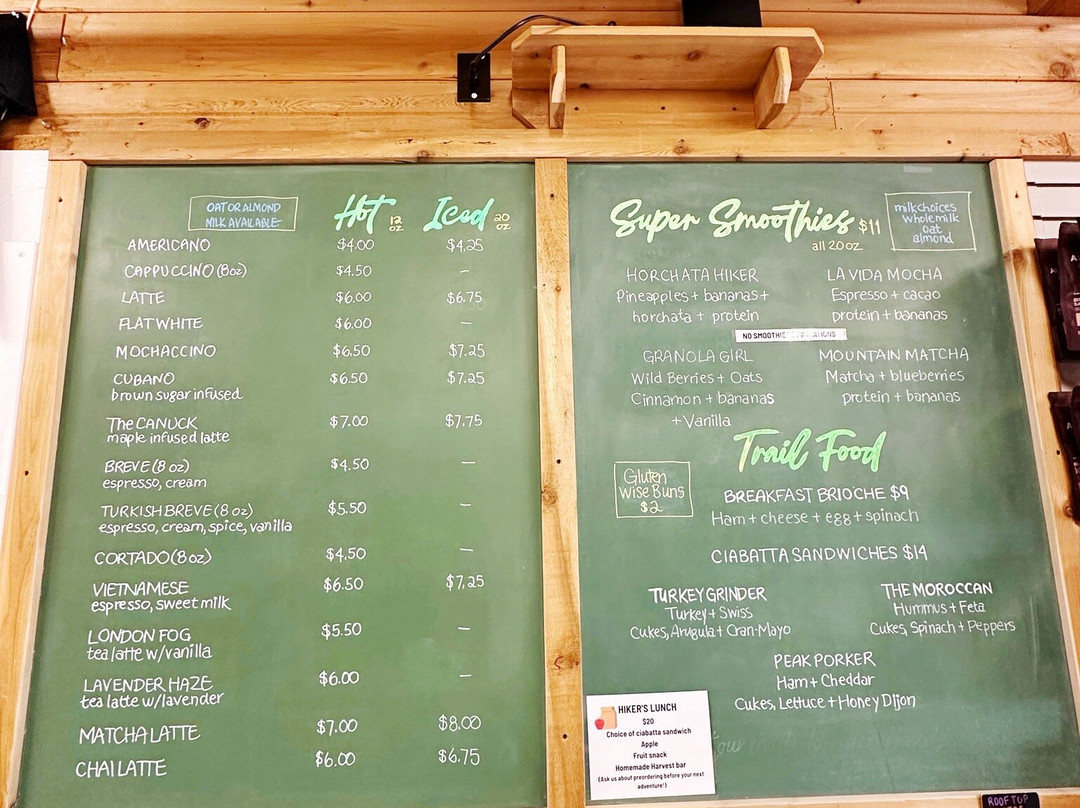 OAT OR ALMOND
MILK AVAILABLE
Hot 12 oz
Iced 20 oz
AMERICANO $4.00 $4.25
CAPPUCCINO (8oz) $4.50 —
LATTE $6.00 $6.75
FLAT WHITE $6.00 —
MOCHACCINO $6.50 $7.25
CUBANO $6.50 $7.25
brown sugar infused
The CANUCK $7.00 $7.75
maple infused latte
BREVE (8 oz) $4.50 —
espresso, cream
TURKISH BREVE (8 oz) $5.50 —
espresso, cream, spice, vanilla
CORTADO (8oz) $4.50 —
VIETNAMESE $6.50 $7.25
espresso, sweet milk
LONDON FOG $5.50 —
tea latte w/vanilla
LAVENDER HAZE $6.00 —
tea latte w/lavender
MATCHA LATTE $7.00 $8.00
CHAI LATTE $6.00 $6.75
Super Smoothies $11
all 20 oz
milk choices
whole milk
oat
almond
HORCHATA HIKER
Pineapples + bananas +
horchata + protein
LA VIDA MOCHA
Espresso + cacao
protein + bananas
NO SMOOTHIE
GRANOLA GIRL
Wild Berries + Oats
Cinnamon + bananas
+ Vanilla
MOUNTAIN MATCHA
Matcha + blueberries
protein + bananas
Trail Food
Gluten
Wise Buns
$2
BREAKFAST BRIOCHE $9
Ham + cheese + egg + spinach
CIABATTA SANDWICHES $14
TURKEY GRINDER
Turkey + Swiss
Cukes, Arugula + Cran-Mayo
THE MOROCCAN
Hummus + Feta
Cukes, Spinach + Peppers
PEAK PORKER
Ham + Cheddar
Cukes, Lettuce + Honey Dijon
HIKER'S LUNCH
$20
Choice of ciabatta sandwich
Apple
Fruit snack
Homemade Harvest bar
(Ask us about preordering before your next
adventure!)
ROOFTOP